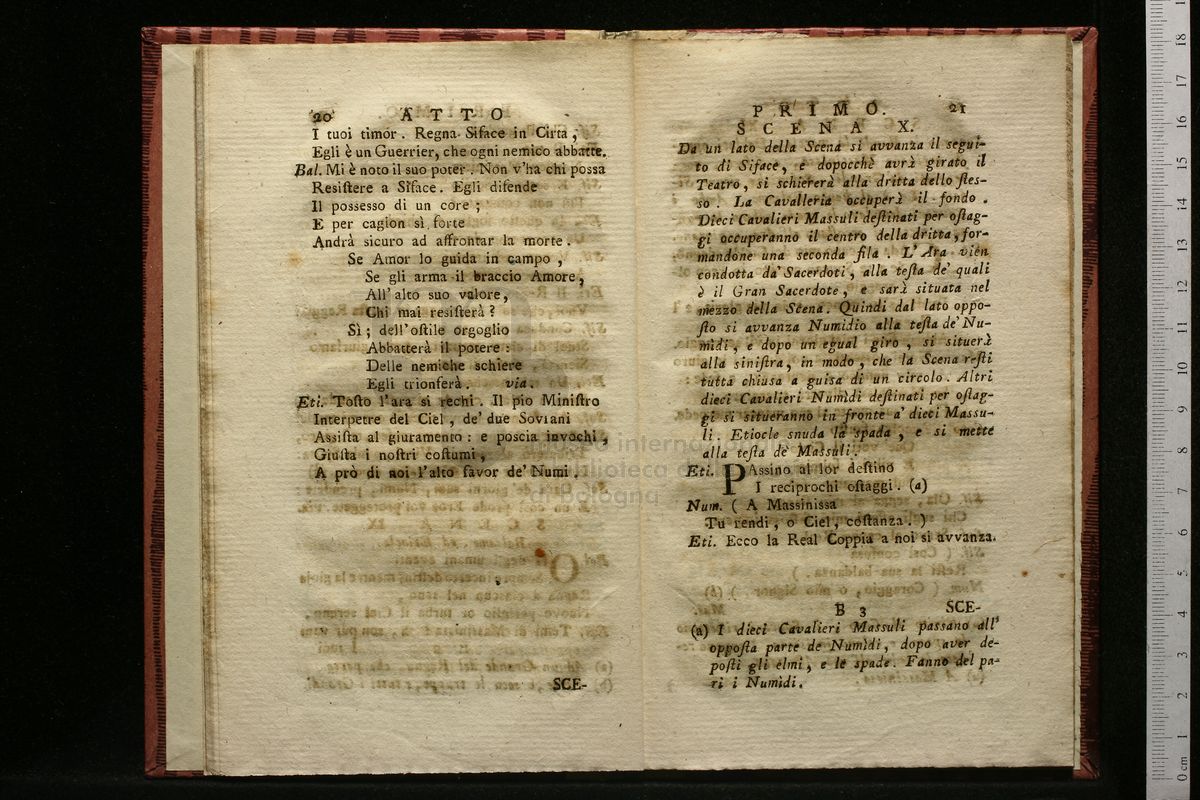 20 ATTO
I tuoi timor. Regna Siface in Cirta,
Egli è un Guerrier, che ogni nemico abbatte.
Bal. Mi è noto il suo poter. Non v'ha chi possa
Resiſtere a Siface. Egli difende
Il possesso di un core;
E per cagion sì forte
Andrà sicuro ad affrontar la morte.
Se Amor lo guida in campo,
Se gli arma il braccio Amore,
All'alto suo valore,
Chi mai resiſterà?
Sì; dell'oſtile orgoglio
Abbatterà il potere:
Delle nemiche schiere
Egli trionferà. via.
Eti. Toſto l'ara si rechi. Il pio Miniſtro
Interpetre del Ciel, de' due Soviani
Assiſta al giuramento: e poscia invochi,
Giuſta i noſtri coſtumi,
A prò di noi l'alto favor de' Numi.
SCE-
PRIMO. 21
SCENA X.
Da un lato della Scena si avvanza il segui-
to di Siface, e dopocchè avrà girato il
Teatro, si schiererà alla dritta dello ſtes-
so. La Cavalleria occuperà il fondo.
Dieci Cavalieri Massuli deſtinati per oſtag-
gi occuperanno il centro della dritta, for-
mandone una seconda fila. L'Ara vien
condotta da' Sacerdoti, alla teſta de' quali
è il Gran Sacerdote, e sarà situata nel
mezzo della Scena. Quindi dal lato oppo-
ſto si avvanza Numidio alla teſta de' Nu-
mìdi, e dopo un egual giro, si situerà
alla siniſtra, in modo, che la Scena reſti
tutta chiusa a guisa di un circolo. Altri
dieci Cavalieri Numìdi deſtinati per oſtag-
gi si situeranno in fronte a' dieci Massu-
li. Etiocle snuda la spada, e si mette
alla teſta de' Massuli.
Eti. PAssino al lor deſtino
I reciprochi oſtaggi. (a)
Num. ( A Massinissa
Tu rendi, o Ciel, coſtanza. )
Eti. Ecco la Real Coppia a noi si avvanza.
B 3 SCE-
(a) I dieci Cavalieri Massuli passano all'
oppoſta parte de Numìdi, dopo aver de-
poſti gli elmi, e le spade. Fanno del pa-
ri i Numìdi.